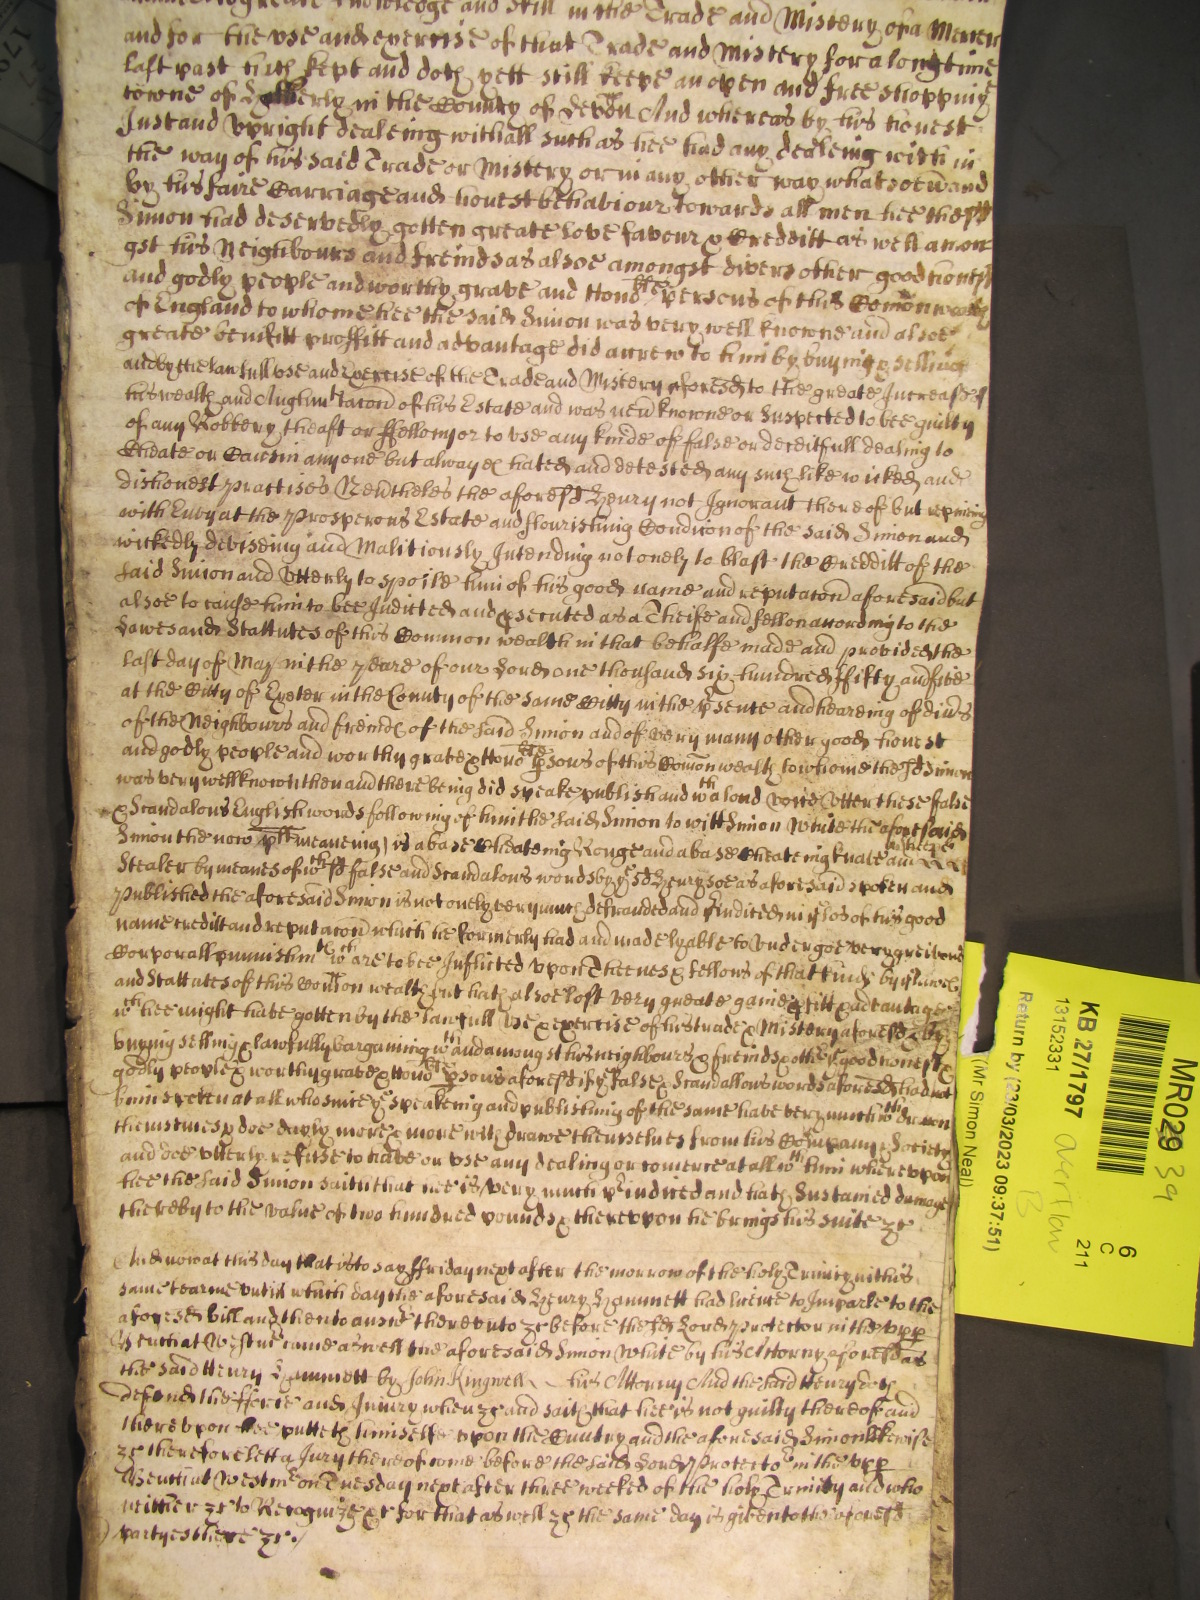 greate knowledge and skill in the Trade and Mistery of a Mercer
and for the vse and exercise of that Trade and Mistery for a longtime
last past hath kept and doth yett still keepe an open and free shopp in
towne of in the County of Devon And whereas by his honest
Just and Vpright dealeing withall such as hee had any dealeing with in
the way of his said Trade or Mistery or in any other way whatsoeu and
by his faire Carriage and honest behaviour towards all men hee the sd
Simon had deservedly gotten greate love favour & Credditt as well amon
gst his Neighbours and freinds as alsoe amongst divers other good honest
and godly people and worthy grave and Honoble persons of this Comonwealth
of England to whome hee the said Simon was very well knowne and alsoe
greate benifitt proffitt and advantage did accrew to him by buying & selling
and by the lawfull vse and Exercise of the Trade and Mistery aforesd to the greate Increase of
his wealth and Augmentacon of his Estate and was neu knowne or Suspected to bee guilty
of any Robbery theaft or ffellony or to vse any kinde of false or deceitfull dealing to
Cheate or Cousin any one but alwayes hated and detested any such like wicked and
dishonest practises Neutheles the aforesd Henry not Ignorant thereof but repineing
with Envy at the Prosperous Estate and flourishing Condicon of the said Simon and
wickedly deviseing and Malitiously Intending not onely to blast the Credditt of the
said Simon and Vtterly to spoile him of his good name and reputacon aforesaid but
alsoe to cause him to bee Indicted and psecuted as a Theife and fellon according to the
Lawes and Stattutes of this Common wealth in that behalfe made and provided the
last day of May in the yeare of our Lord one thousand six hundred ffifty and five
at the Citty of Exeter in the County of the same Citty in the psence and heareing of diuers
of the Neighbours and freinds of the said Simon and of very many other good honest
and godly people and worthy grave & Honoble psons of this Comonwealth to whome the sd Simon
was very well known then and there being did speake publish and wth a loud voice Vtter these false
& Scandalous English words following of him the said Simon to witt Simon White the aforesaid
Simon the now plt meaneing) is a base Cheateing Rouge and a base Cheateing knave and a
Stealer by meanes of wch sd false and Scandalous words by ye sd Henry soe as aforesaid spoken and
Published the aforesaid Simon is not onely very much defrauded and piudiced in ye los of his good
name creditt and reputacon which he formerly had and made lyable to vndergoe very greivous
Corporall punishmt wch are to bee Inflicted vpon Theeves & fellows of that kinde by ye lawes
and Stattutes of this Common wealth but hath alsoe lost very greate gaine pfitt & advantage
wch hee might have gotten by the lawfull vse & exercise of his trade & Mistery aforesd & by
buying selling & lawfully bargaining wth and amongst his neighbours & freinds & other good honest &
godly people & worthy grave & Honoble psons aforesd if ye false & Scandallous words aforesd had not
bin spoken at all who since ye speakeing and publishing of the same have very much wthdrawn
themselues & doe dayly more & more withdrawe themselves from his Company & Society
and doe vtterly refuse to have or vse any dealing or comerce at all wth him wherevpon
hee the said Simon saith that hee is very much piudiced and hath Sustained damage
thereby to the value of two hundred pounds & therevpon he brings his suite &c
And now at this day that is to say ffriday next after the morrow of the holy Trinity in this
same tearme vntill which day the aforesaid Henry Hammett had licence to Imparle to the
aforesd bill and then to answer therevnto &c before the sd Lord Protector in the vpp
Bench at Westmr came aswell the aforesaid Simon White by his Attorny aforesd as
the said Henry Hammett by John Kingwell his Attorny And the said Henry doth
defend the fforce and Iniury when &c and saith that hee is not guilty thereof and
therevpon hee putteth himselfe vpon the Cuntry and the aforesaid Simon likewise
&c therefore lett a Jury thereof come before the said Lord Protector in the vpp
Bench at Westmr on Tuesday next after three weekes of the holy Trinity and who
neither &c to Recognize &c for that as well &c the same day is given to the aforesd
partyes there &c
MR029 39
6
C
211
KB 27/1797
13152331
overflow
B
Return by (23/03/2023 09:37:51)
(Mr Simon Neal)